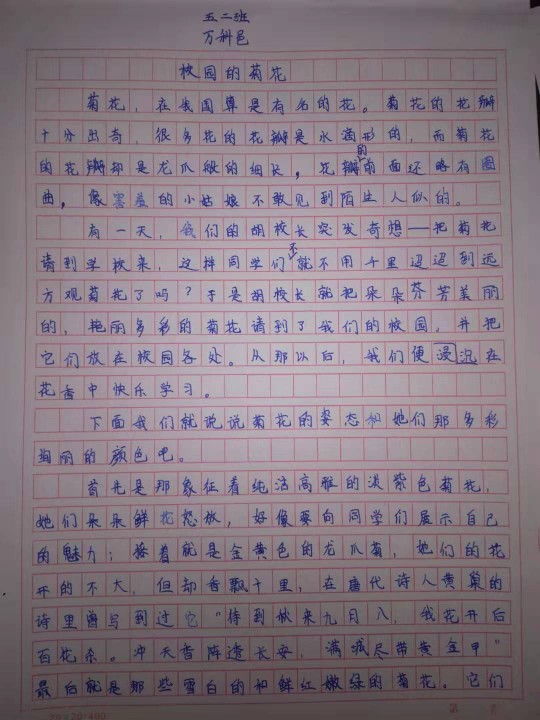 五二班
万科邑
校园的菊花
菊花，在我国算是有名的花。菊花的花瓣
十分出奇，很多花的花瓣是水滴形的，而菊花
的花瓣却是龙爪般的细长，花瓣的前面还略有圈
曲，像害羞的小姑娘不敢见到陌生人似的。
有一天，我们的胡校长突发奇想——把菊花
请到学校来，这样同学们不就不用千里迢迢到远
方观菊花了吗？于是胡校长就把朵朵芬芳美丽
的、艳丽多彩的菊花请到了我们的校园，并把
它们放在校园各处。从那以后，我们便浸沉在
花香中快乐学习。
下面我们就说说菊花的姿态和她们那多彩
绚丽的颜色吧。
首先是那象征着纯洁高雅的淡紫色菊花，
她们朵朵鲜花怒放，好像要向同学们展示自己
的魅力；接着就是金黄色的龙爪菊，她们的花
开的不大，但却香飘十里，在唐代诗人黄巢的
诗里曾写到过它“待到秋来九月八，我花开后
百花杀。冲天香阵透长安，满城尽带黄金甲”
最后就是那些雪白的和鲜红嫩绿的菊花。它们
20×20=400